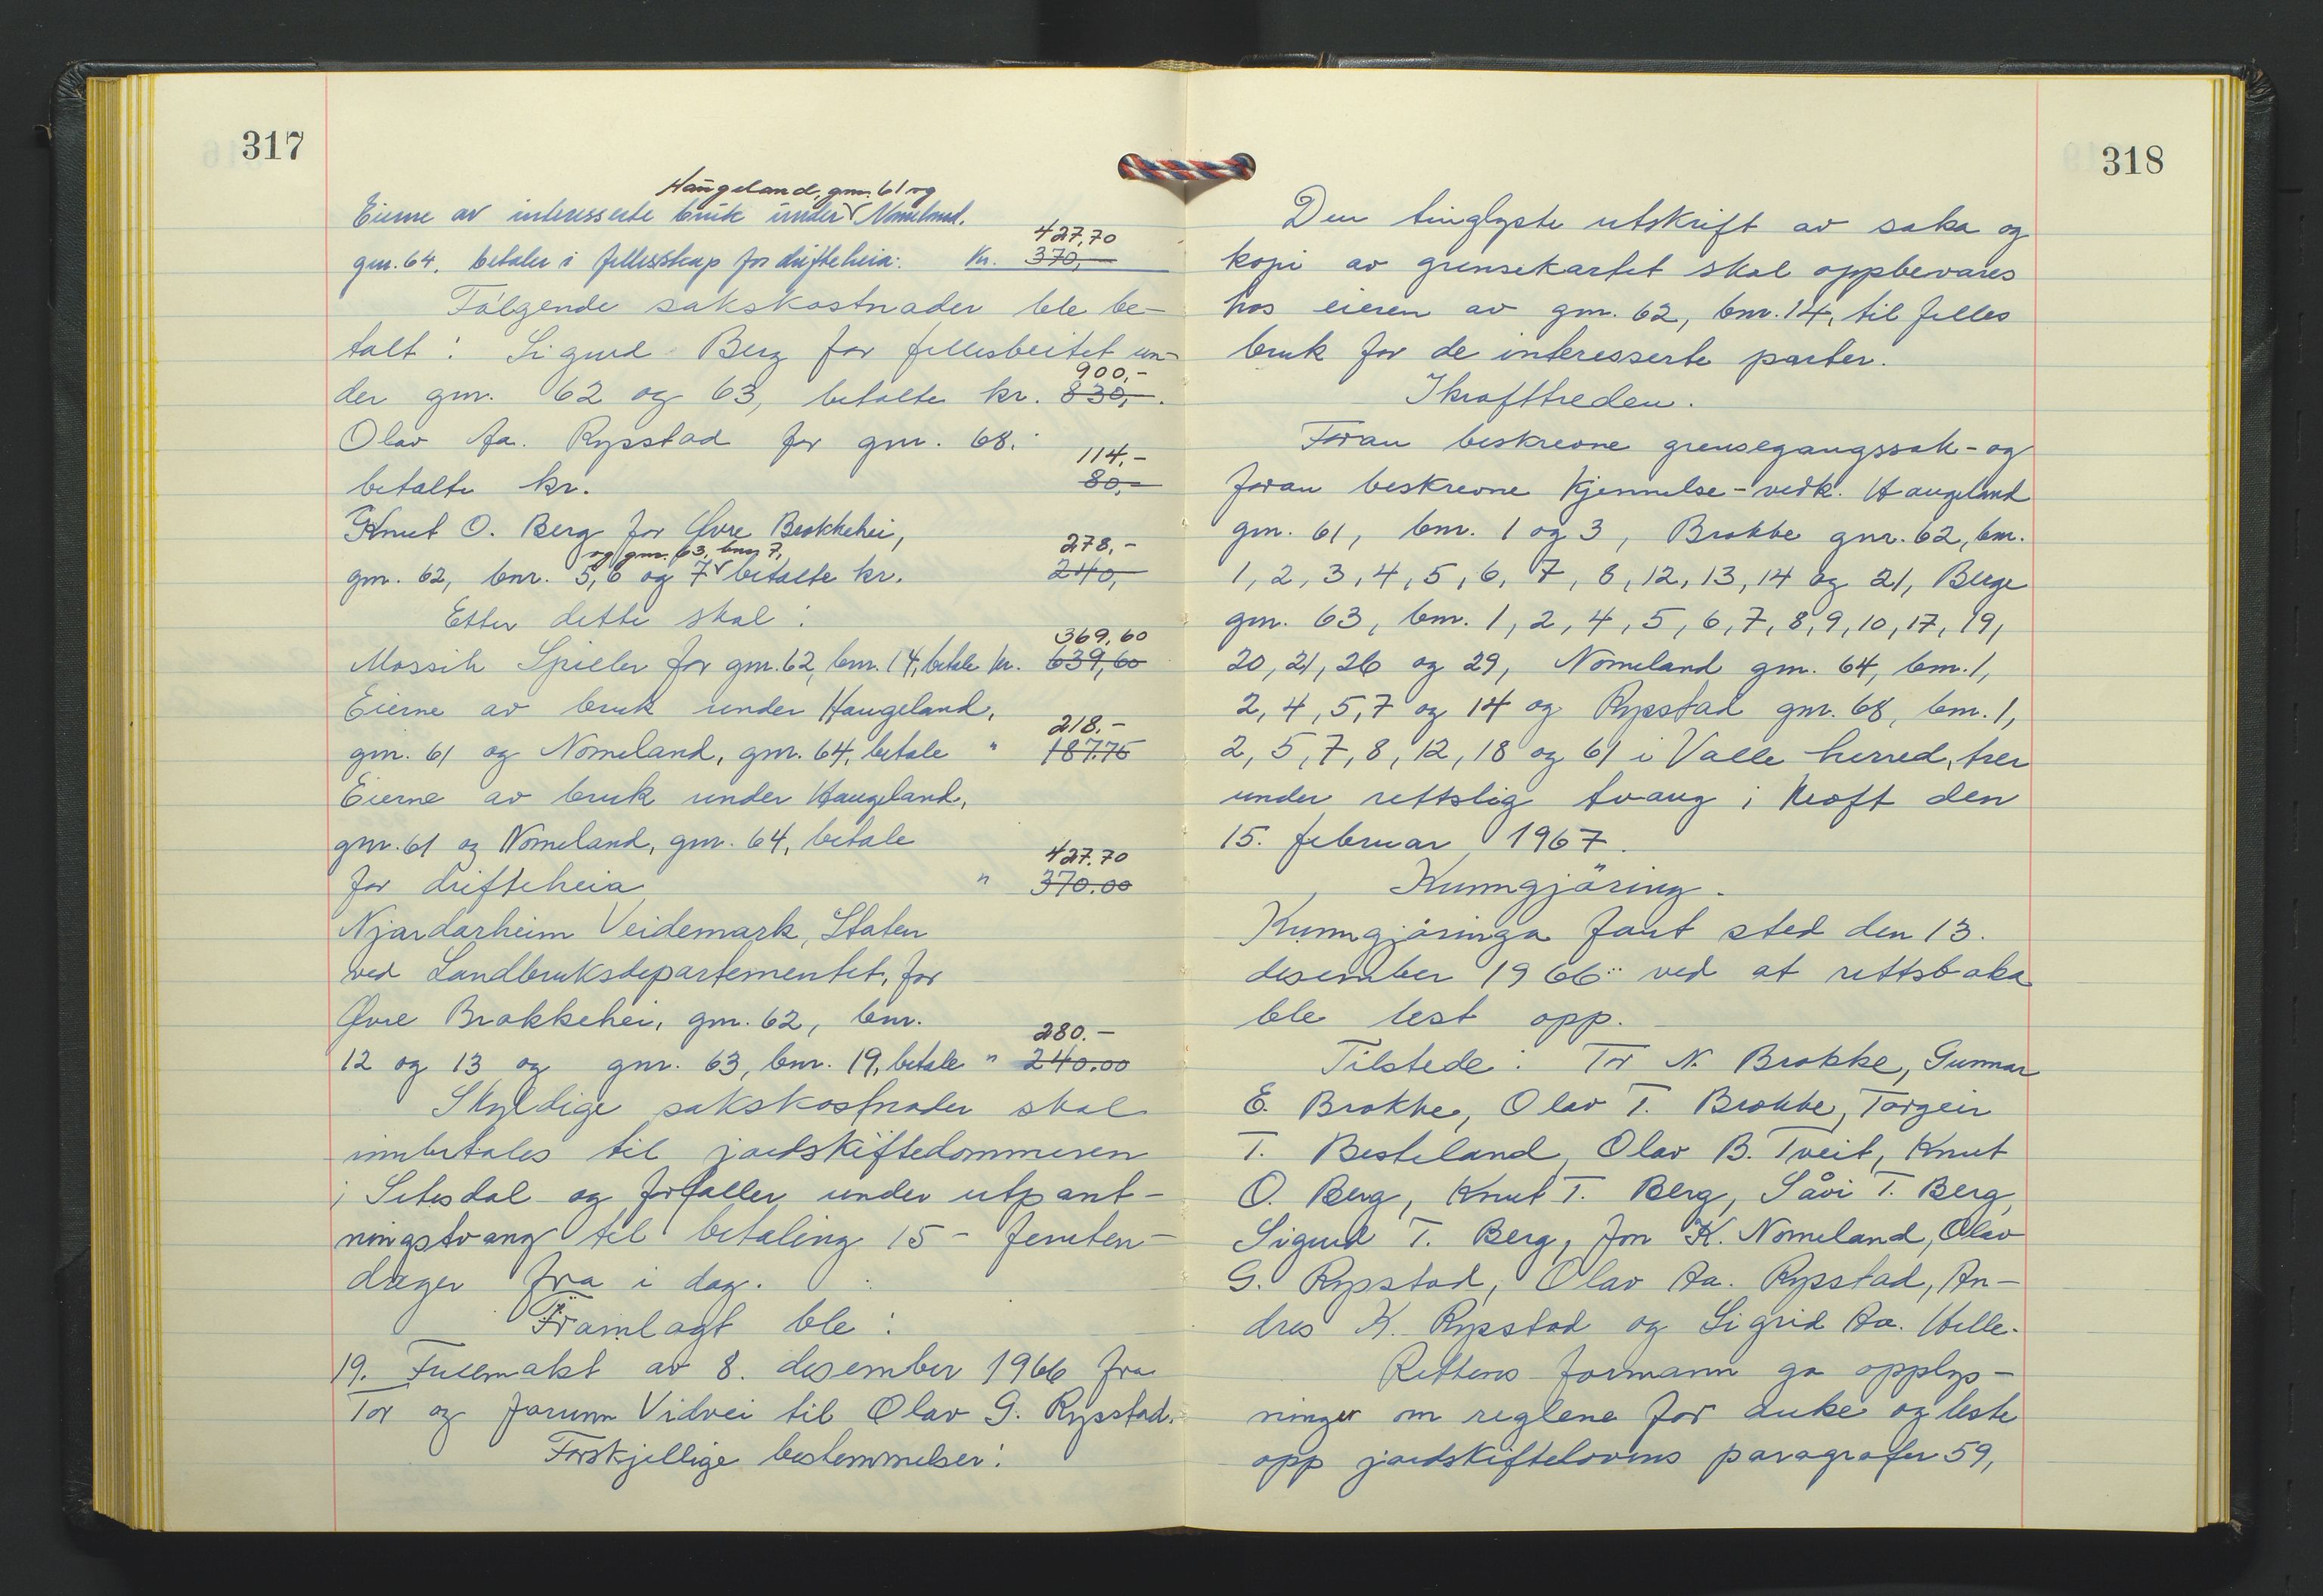 317
Haugeland, gnr. 61 og
Eierne av interesserte bruk under Nomeland,
427,70
gnr. 64, betaler i fellesskap for drifteheia: kr. 370,-
Følgende sakskostnader ble be-
talt: Sigurd Berg for fellesbeitet un-
900,-
der gnr. 62 og 63, betalte kr. 830,-.
Olav Aa. Rysstad for gnr. 68.
114,-
betalte kr. 80,-
Knut O. Berg for Øvre Brokkehei,
og gnr. 63, bnr 7, 278,-
gnr. 62, bnr. 5, 6 og 7 betalte kr. 240,-
Etter dette skal:
369,60
Mossik Spieler for gnr. 62, bnr. 14, betale kr. 639,60
Eierne av bruk under Haugeland,
218.-
gnr. 61 og Nomeland, gnr. 64, betale " 187.75
Eierne av bruk under Haugeland,
gnr. 61 og Nomeland, gnr. 64, betale
427.70
for drifteheia " 370.00
Njardarheim Veidemark, Staten
ved Landbruksdepartementet, for
Øvre Brokkehei, gnr. 62, bnr.
280.-
12 og 13 og gnr. 63, bnr. 19, betale " 240.00
Skyldige sakskostnader skal
innbetales til jordskiftedommeren
i Setesdal og forfaller under utpant-
ningstvang til betaling 15 - femten -
dager fra i dag.
Framlagt ble:
19. Fullmakt av 8. desember 1966 fra
Tor og Jorunn Vidvei til Olav G. Rysstad.
Forskjellige bestemmelser:
318
Den tinglyste utskrift av saka og
kopi av grensekartet skal oppbevares
hos eieren av gnr. 62, bnr. 14, til felles
bruk for de interesserte parter.
Ikrafttreden.
Foran beskrevne grensegangssak - og
foran beskrevne kjennelse - vedk. Haugeland
gnr. 61, bnr. 1 og 3, Brokke gnr. 62, bnr.
1, 2, 3, 4, 5, 6, 7, 8, 12, 13, 14 og 21, Berge
gnr. 63, bnr. 1, 2, 4, 5, 6, 7, 8, 9, 10, 17, 19,
20, 21, 26 og 29, Nomeland gnr. 64, bnr. 1,
2, 4, 5, 7 og 14 og Rysstad gnr. 68, bnr. 1,
2, 5, 7, 8, 12, 18 og 61 i Valle herred, trer
under rettslig tvang i kraft den
15. februar 1967.
Kunngjøring.
Kunngjøringa fant sted den 13.
desember 1966 ved at rettsboka
ble lest opp.
Tilstede: Tor N. Brokke, Gunnar
E. Brokke, Olav T. Brokke, Torgeir
T. Besteland, Olav B. Tveit, Knut
O. Berg, Knut T. Berg, Såvi T. Berg,
Sigurd T. Berg, Jon K. Nomeland, Olav
G. Rysstad, Olav Aa. Rysstad, An-
dres K. Rysstad og Sigrid Aa. Helle.
Rettens formann ga opplys-
ninger om reglene for anke og leste
opp jordskiftelovens paragrafer 59,